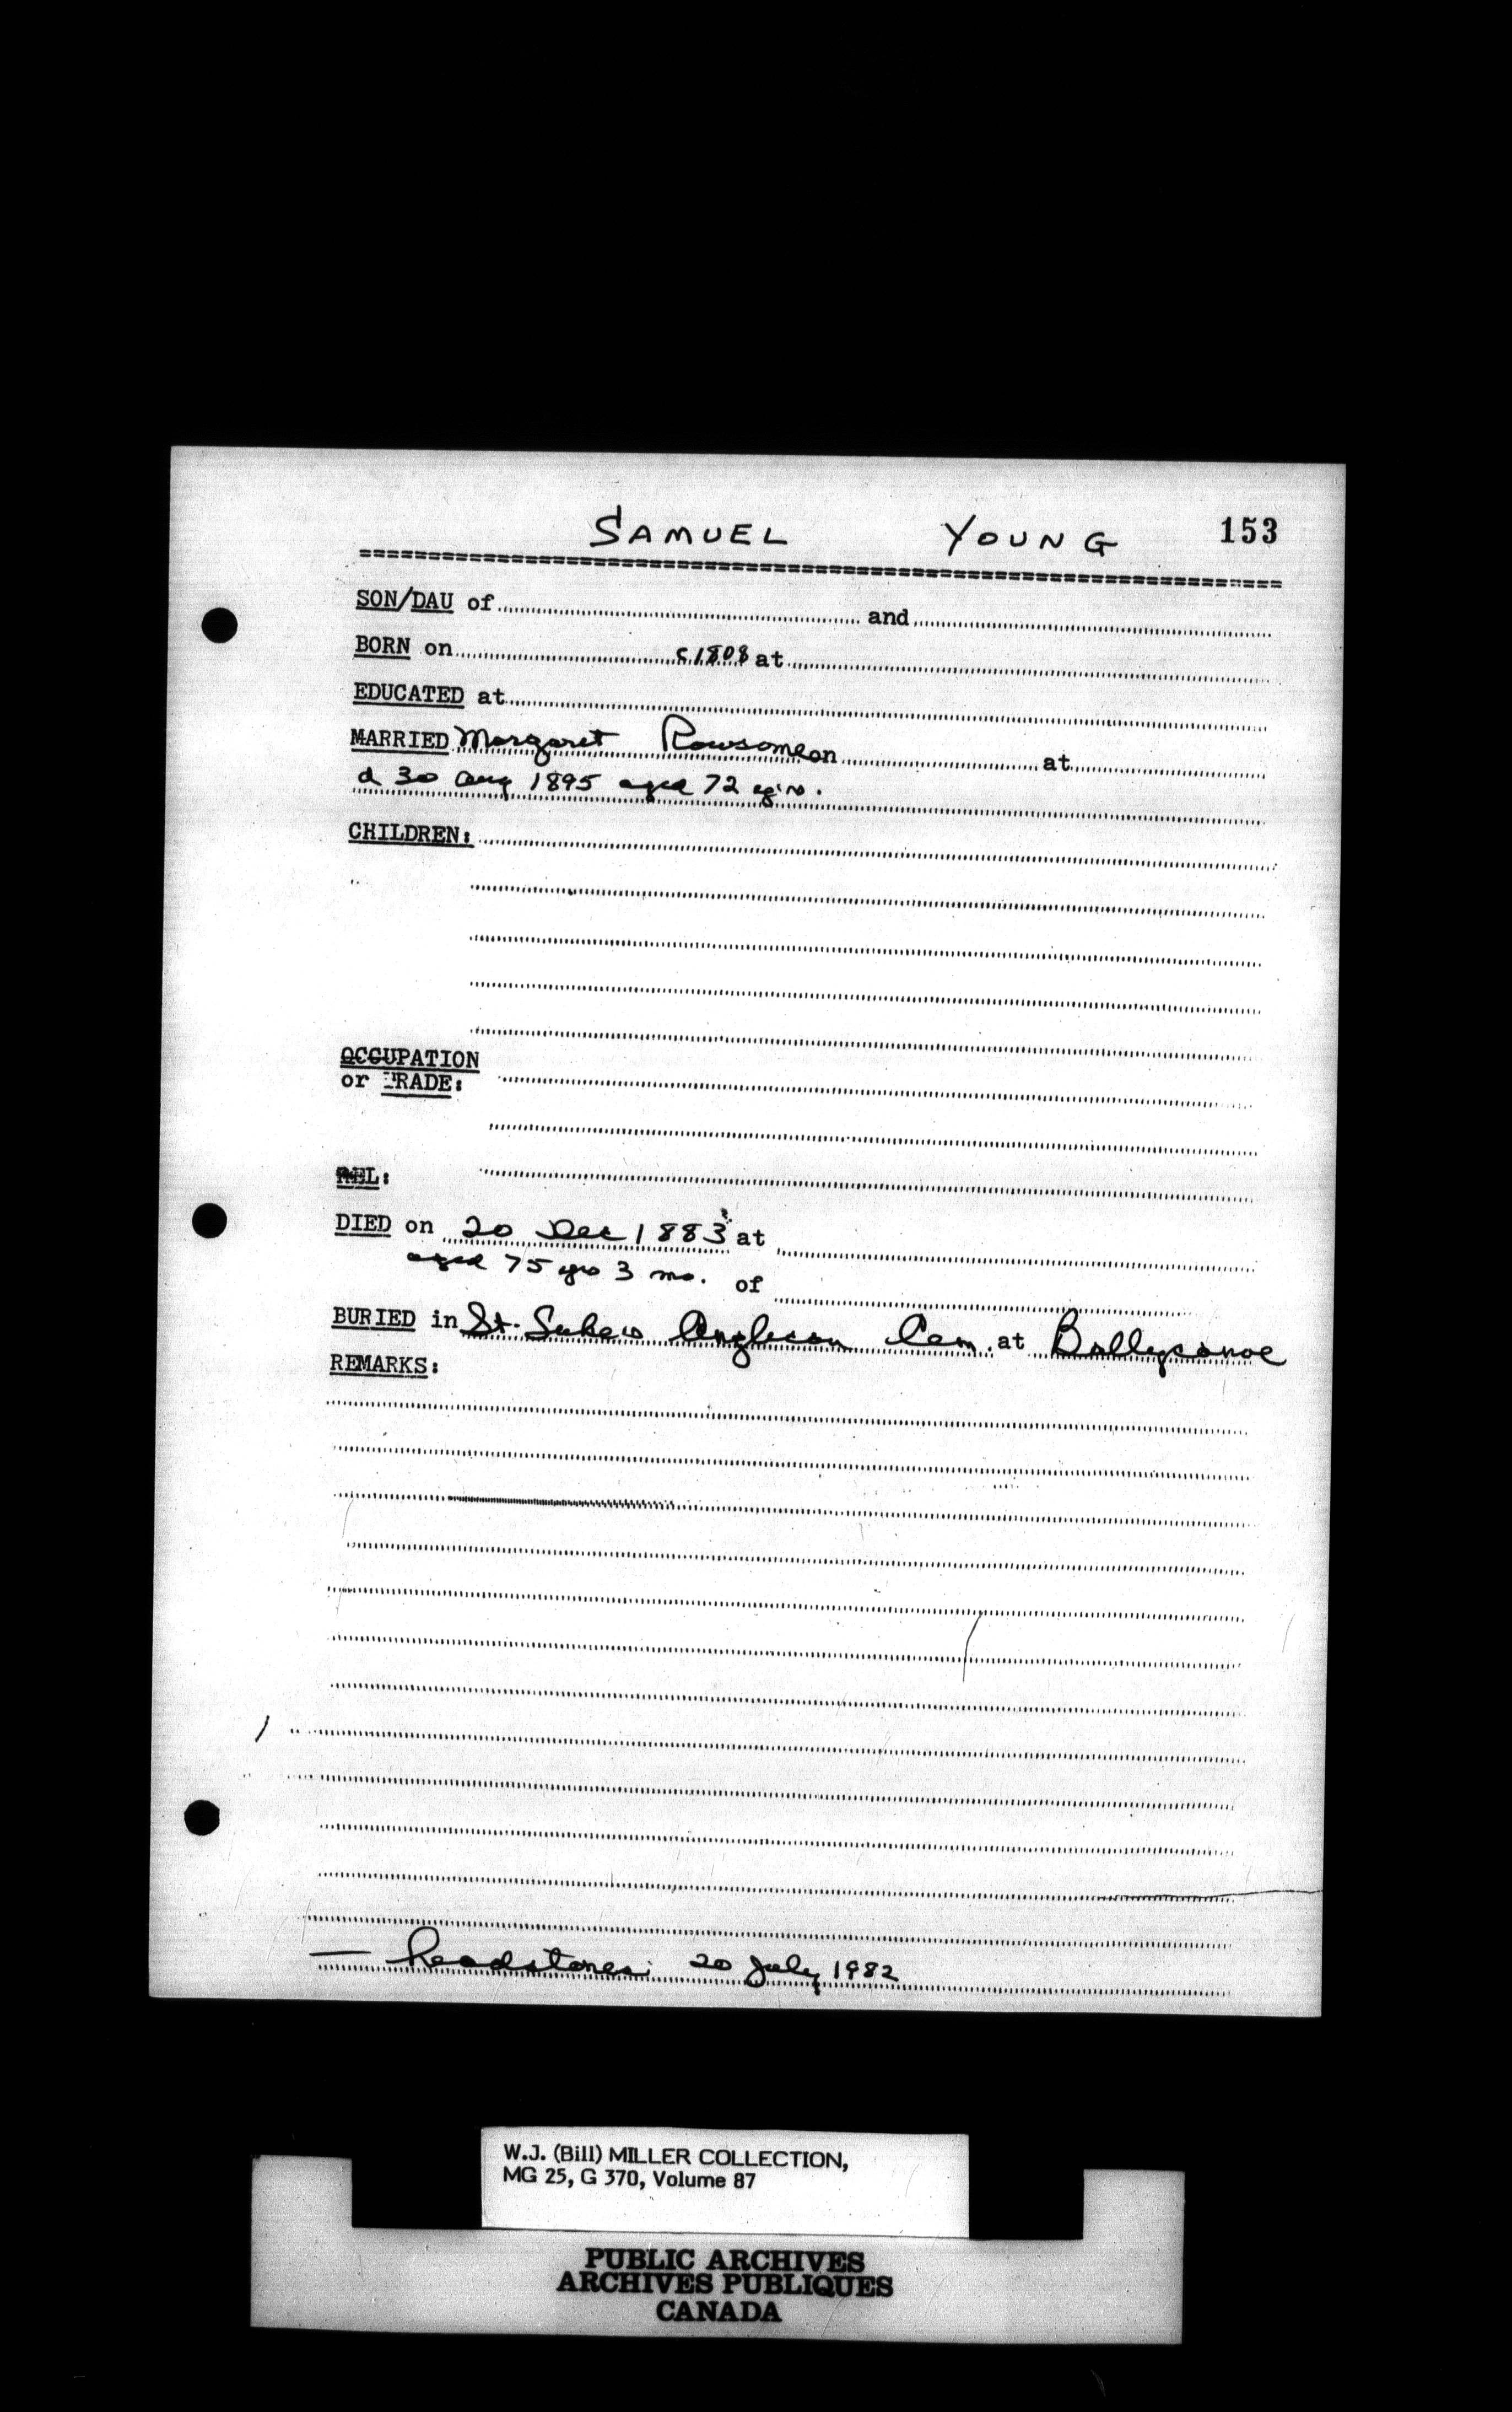 SAMUEL YOUNG 153
SON/DAU of and
BORN on c1808 at
EDUCATED at
MARRIED Margaret Rowsome on at
d 30 Aug 1895 aged 72 yrs.
CHILDREN:
OCCUPATION
or TRADE:
REL:
DIED on 20 Dec 1883 at
aged 75 yrs 3 mo. of
BURIED in St. Lukes Anglican Cem. at Ballycanoe
REMARKS:
— headstones 20 July 1982
W.J. (Bill) MILLER COLLECTION,
MG 25, G 370, Volume 87
PUBLIC ARCHIVES
ARCHIVES PUBLIQUES
CANADA